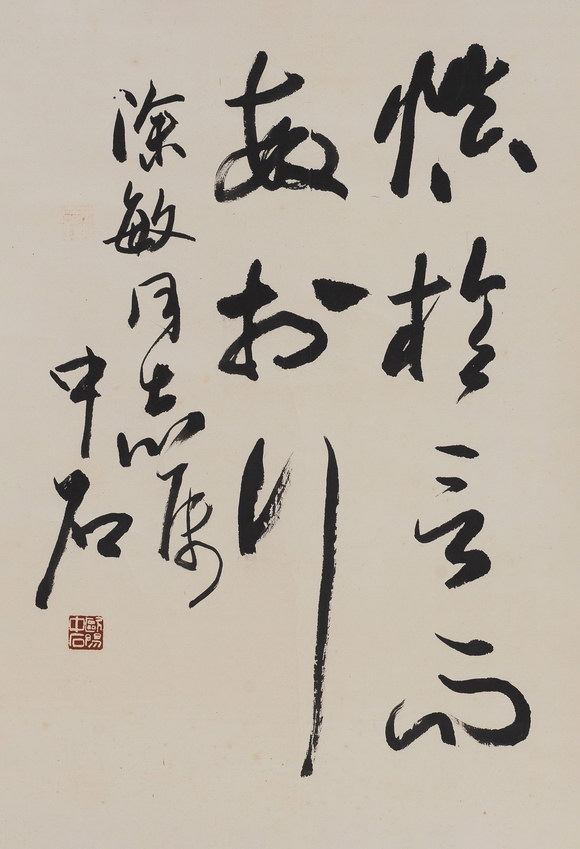 慎於言而
敏於行
深敏同志属
中石
歐陽中石